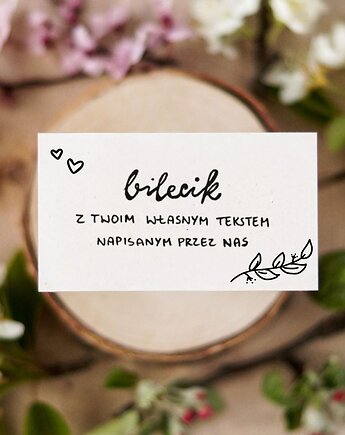 bilecik
Z TWOIM WŁASNYM TEKSTEM
NAPISANYM PRZEZ NAS